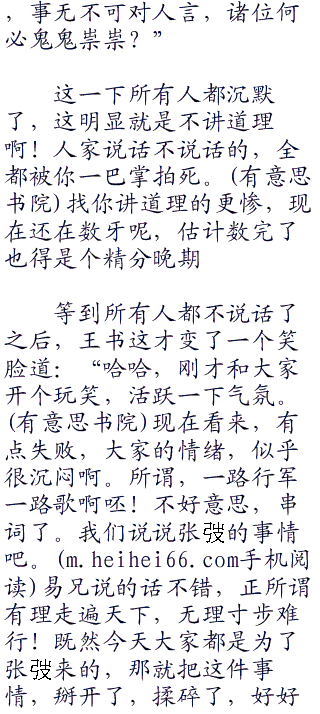 ，事无不可对人言，诸位何
必鬼鬼祟祟？”
这一下所有人都沉默
了，这明显就是不讲道理
啊！人家说话不说话的，全
都被你一巴掌拍死。(有意思
书院)找你讲道理的更惨，现
在还在数牙呢，估计数完了
也得是个精分晚期
等到所有人都不说话了
之后，王书这才变了一个笑
脸道：“哈哈，刚才和大家
开个玩笑，活跃一下气氛。
(有意思书院)现在看来，有
点失败，大家的情绪，似乎
很沉闷啊。所谓，一路行军
一路歌啊呸！不好意思，串
词了。我们说说张弢的事情
吧。(m.heihei66.com手机阅
读)易兄说的话不错，正所谓
有理走遍天下，无理寸步难
行！既然今天大家都是为了
张弢来的，那就把这件事
情，掰开了，揉碎了，好好